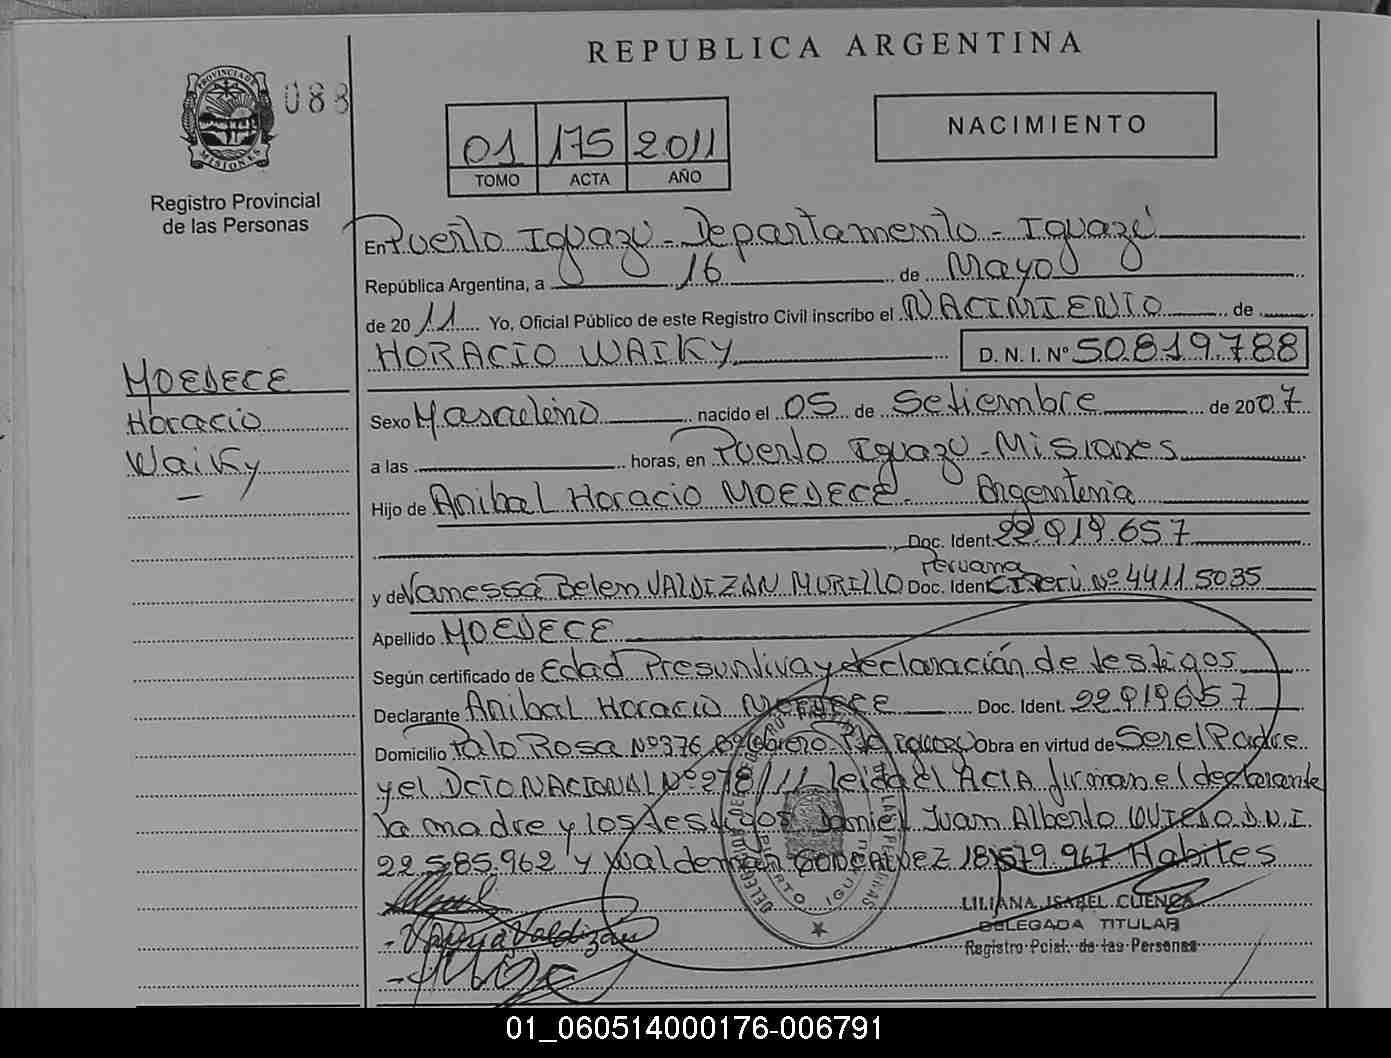 REPUBLICA ARGENTINA
PROVINCIA DE
MISIONES
088
Registro Provincial
de las Personas
01 175 2011
TOMO ACTA AÑO
NACIMIENTO
En Puerto Iguazú - Departamento - Iguazú
República Argentina, a 16 de Mayo
de 2011 Yo, Oficial Público de este Registro Civil inscribo el NACIMIENTO de
HORACIO WAIKY D.N.I. Nº 50.819.788
MOEDECE
Horacio
Waiky
Sexo Masculino nacido el 05 de Setiembre de 2007
a las horas, en Puerto Iguazu - Misiones
Hijo de Anibal Horacio MOEDECE. Argentina
Doc. Ident. 22.919.657
Peruana
y de Vanessa Belen VALDIZAN MURILLO Doc. Ident. C.I. Perú Nº 44115035
Apellido MOEDECE
Según certificado de Edad Presuntiva y declaración de testigos
Declarante Anibal Horacio MOEDECE Doc. Ident. 22919657
Domicilio Palo Rosa Nº 376 Iguazu Obra en virtud de Ser el Padre
y el DCTO NACIONAL Nº 278/11 leida el ACTA firman el declarante
la madre y los testigos Daniel Juan Alberto OVIEDO D.N.I.
22.585.962 y Waldemar 18.579.967 Habiles
LILIANA ISABEL CUENCA
DELEGADA TITULAR
Registro Pcial. de las Personas
Valdizán
01_060514000176-006791